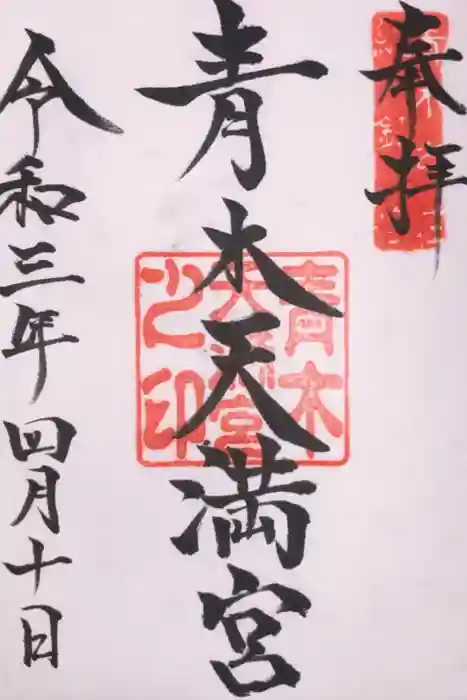 奉拝
青木天満宮
令和三年四月十日
青木
天満宮
之印